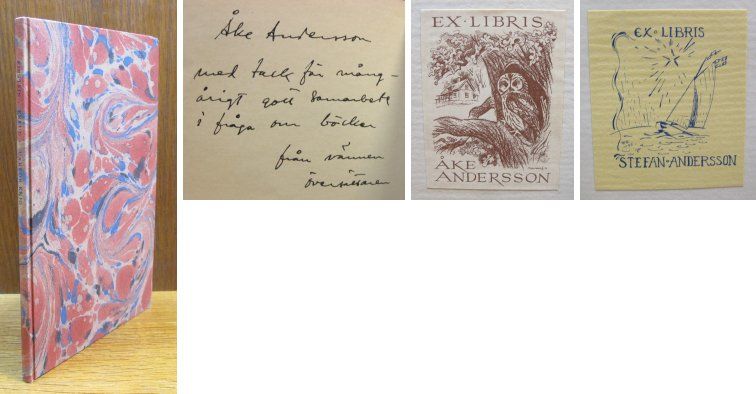 Åke Andersson
med tack för mång-
årigt gott samarbete
i fråga om böcker
från vännen
översättaren
EX·LIBRIS
ÅKE
ANDERSSON
EX·LIBRIS
STEFAN·ANDERSSON